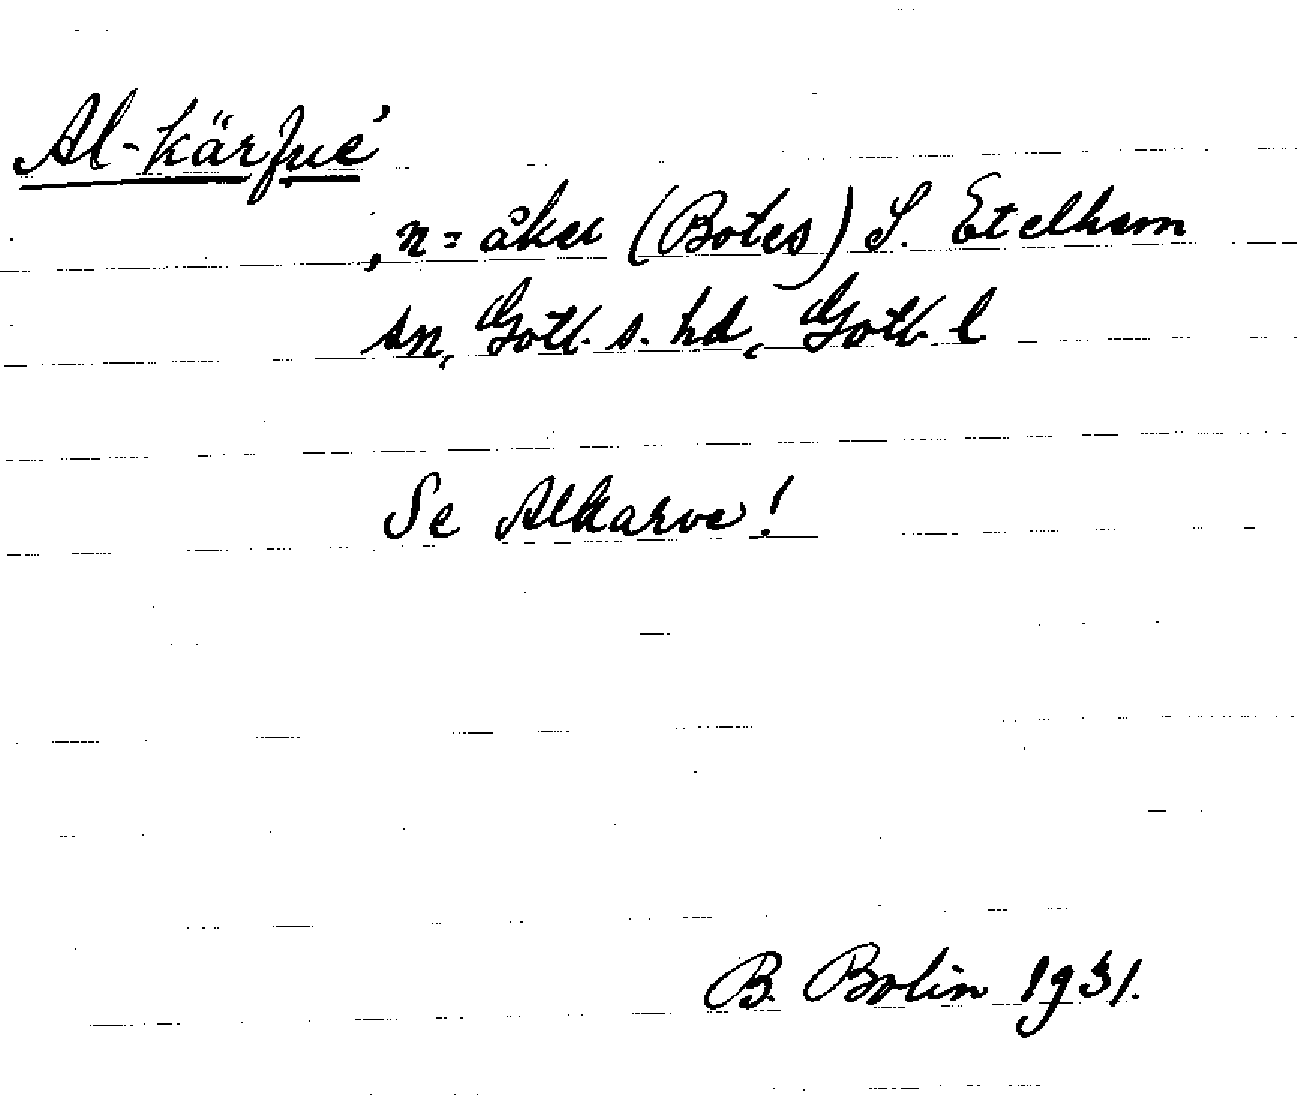 Al-kärfve'
, n = åker (Botes) S. Etelhem
sn, Gotl. s. hd, Gotl. l
Se Alkarve!
B. Bolin 1931.